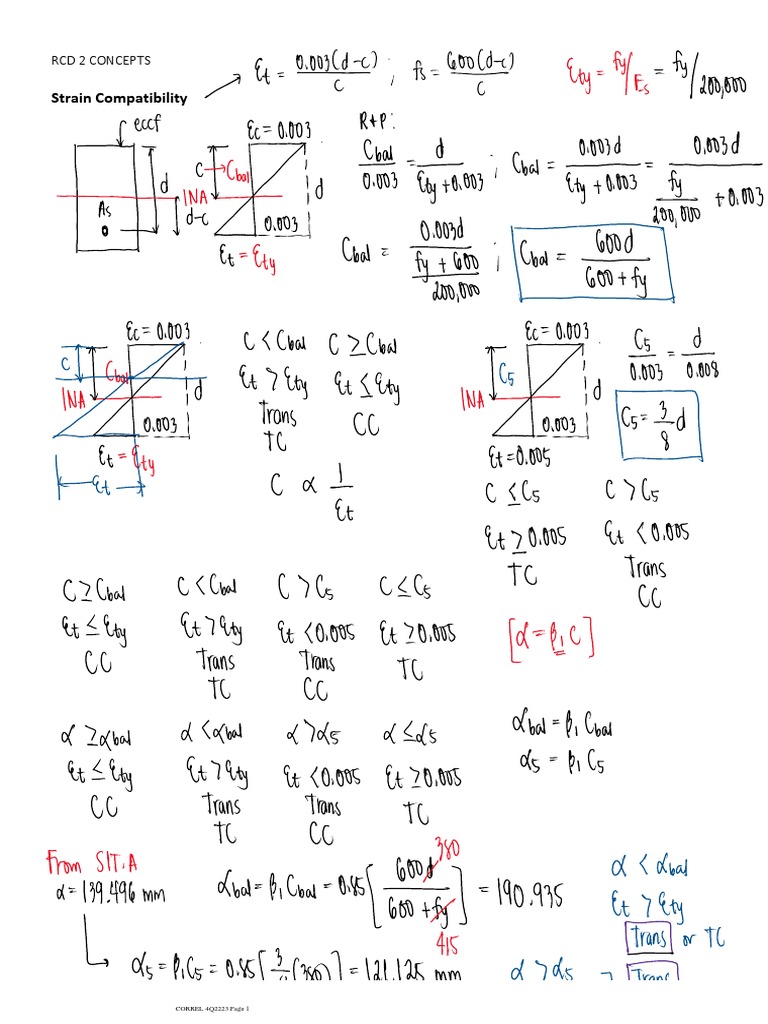 RCD 2 CONCEPTS
εt = 0.003(d-c)/c ; fs = 600(d-c)/c
εty = fy/Es = fy/200,000
Strain Compatibility
eccf
εc = 0.003
R+P:
c → Cbal
d
INA
d-c
As
0.003
d
εt = εty
Cbal/0.003 = d/(εty + 0.003) ; Cbal = 0.003d/(εty + 0.003) = 0.003d/(fy/200,000 + 0.003)
Cbal = 0.003d/((fy + 600)/200,000) ; Cbal = 600d/(600 + fy)
εc = 0.003
c
Cbal
INA
d
0.003
εt = εty
εt
C < Cbal C ≥ Cbal
εt > εty εt ≤ εty
Trans CC
TC
C ∝ 1/εt
εc = 0.003
C5
INA
d
0.003
εt = 0.005
C5/0.003 = d/0.008
C5 = 3/8 d
C ≤ C5 C > C5
εt ≥ 0.005 εt < 0.005
TC Trans
CC
C ≥ Cbal C < Cbal C > C5 C ≤ C5
εt ≤ εty εt > εty εt < 0.005 εt ≥ 0.005
CC Trans Trans TC
TC CC
[α = β1 C]
α ≥ αbal α < αbal α > α5 α ≤ α5
εt ≤ εty εt > εty εt < 0.005 εt ≥ 0.005
CC Trans Trans TC
TC CC
αbal = β1 Cbal
α5 = β1 C5
From SIT.A
α = 139.496 mm
αbal = β1 Cbal = 0.85 [600d/(600 + fy)] = 190.935
380
415
α < αbal
εt > εty
Trans or TC
α5 = β1C5 = 0.85 [3/8 (380)] = 121.125 mm
α > α5 Trans
CORREL 4Q2223 Page 1